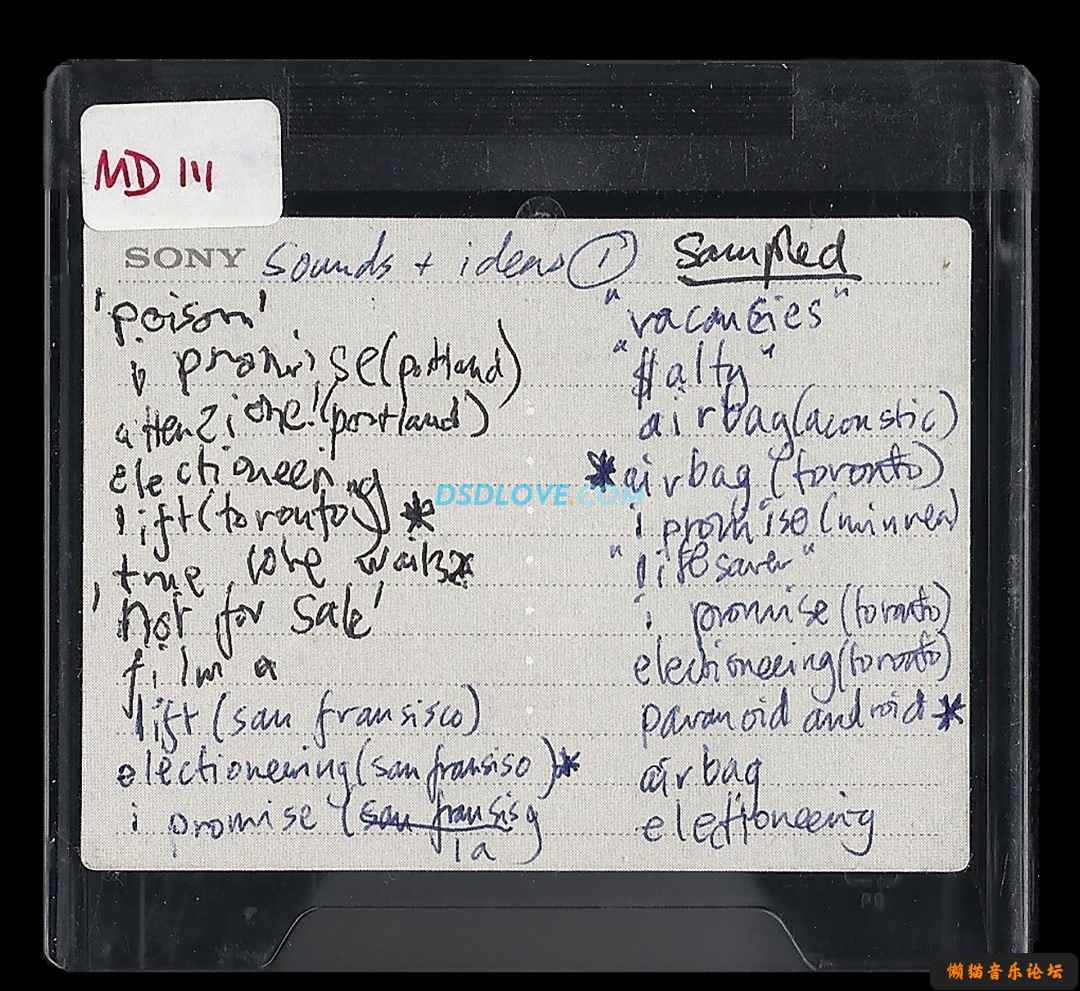 MD 111
SONY sounds + ideas ① sampled
'poison'
i promise (portland)
attenzione! (portland)
electioneering
lift (toronto) *
true love waits *
'not for sale'
film a
lift (san fransisco)
electioneering (san fransiso) *
i promise (san fransisco)
la
"vacansies"
"$alty"
airbag (acoustic)
* airbag (toronto)
i promise (minnea)
"lifesaver"
i promise (toronto)
electioneering (toronto)
paranoid android *
airbag
electioneering
DSDLOVE.COM
懒猫音乐论坛